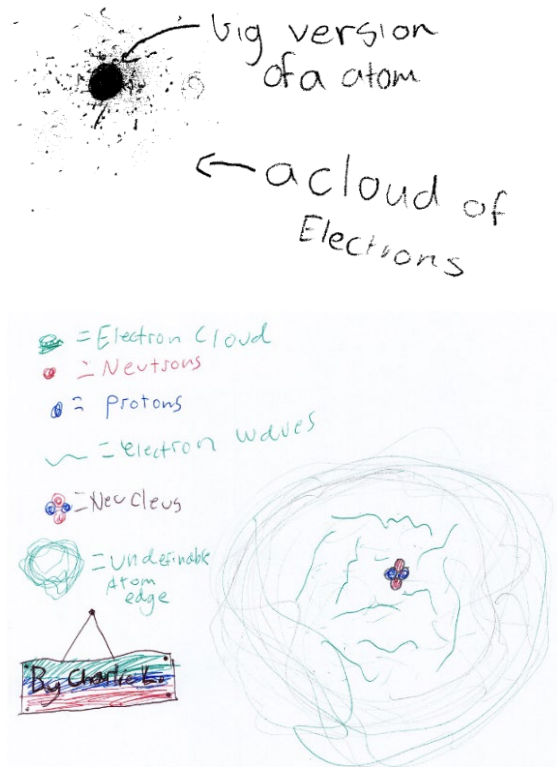 big version
of a atom
a cloud of
Electrons
= Electron Cloud
= Neutrons
= Protons
= electron waves
= Neucleus
= undefinable
Atom
edge
By Charlie